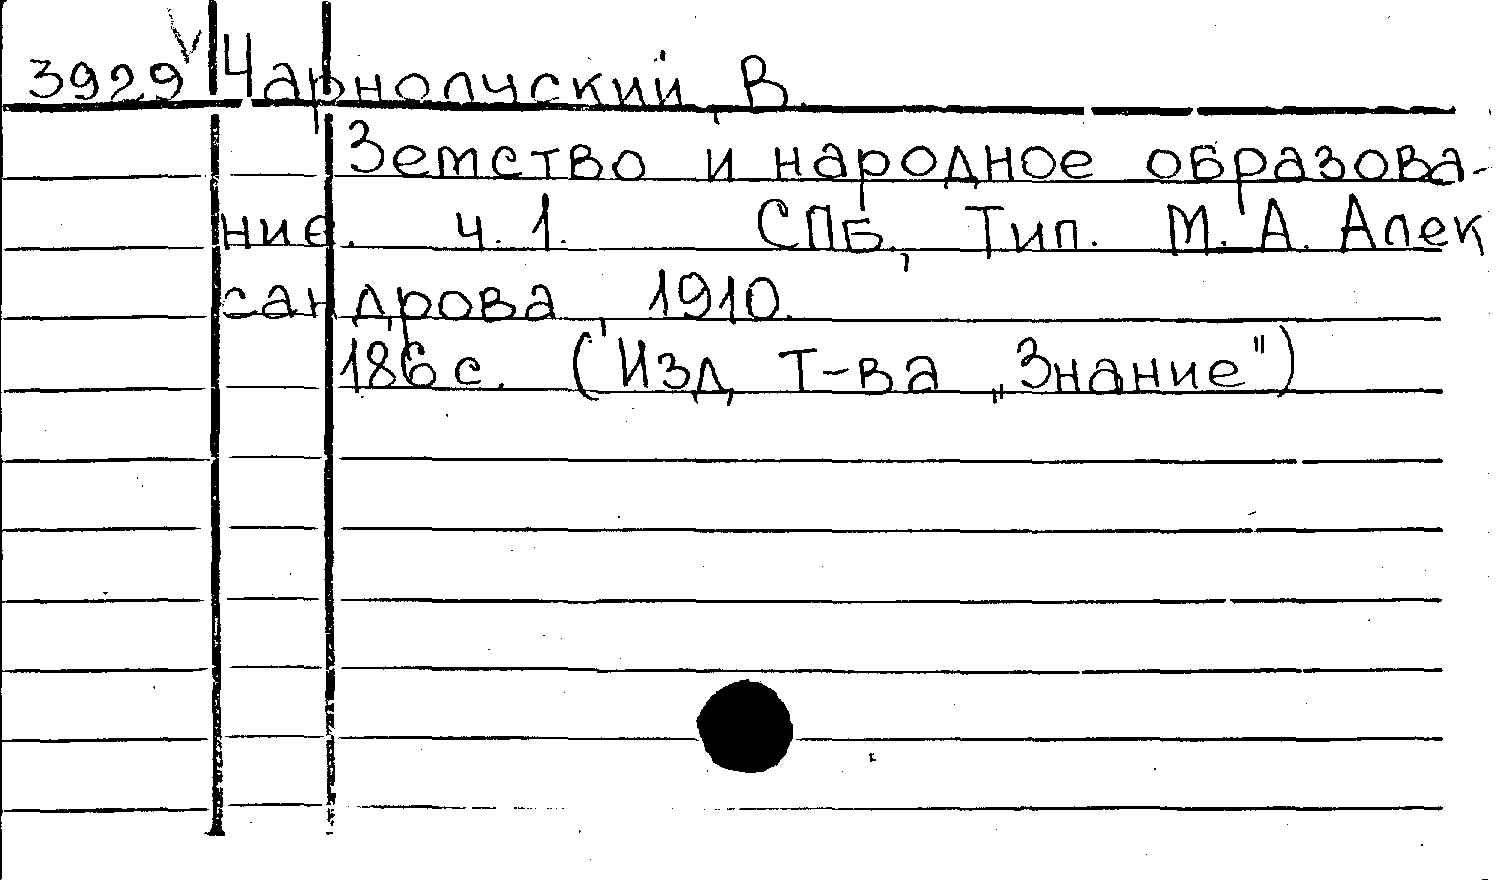 3929 Чарнолуский, В.
Земство и народное образова-
ние. ч. 1. СПБ., Тип. М. А. Алек
сандрова, 1910.
186 с. (Изд. Т-ва „Знание")